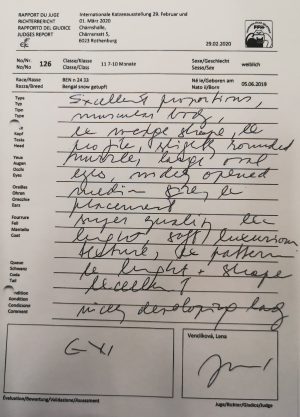 RAPPORT DU JUGE
RICHTERBERICHT
RAPPORTO DEL GIUDICE
JUDGES REPORT
Internationale Katzenausstellung 29. Februar und
01. März 2020
Chärnshalle,
Chärnsmatt 5,
6023 Rothenburg
29.02.2020
No/Nr.
No/No.
126
Classe/Klasse
Classe/Class
11 7-10 Monate
Sexe/Geschlecht
Sesso/Sex
weiblich
Race/Rasse
Razza/Breed
BEN n 24 33
Bengal snow getupft
Né le/Geboren am
Nato il/Born
05.06.2019
Type
Typ
Tipo
Type
Excellent proportions,
muscular body,
Tête
Kopf
Testa
Head
le wedge shape, le
profile, slightly rounded
Yeux
Augen
Occhi
Eyes
muzzle, large oval
eyes, widely opened
Oreilles
Ohren
Orecchie
Ears
medium size, le
placement
Fourrure
Fell
Mantello
Coat
super quality, le
lenght, soft luxurious
texture, le pattern
Queue
Schwanz
Coda
Tail
le lenght + shape
Condition
Kondition
Condizione
Condition
Excellent
Comment
nicely developing lady
EX1
Vendiková, Lena
Evaluation/Bewertung/Validazione/Assessment
Juge/Richter/Giudice/Judge